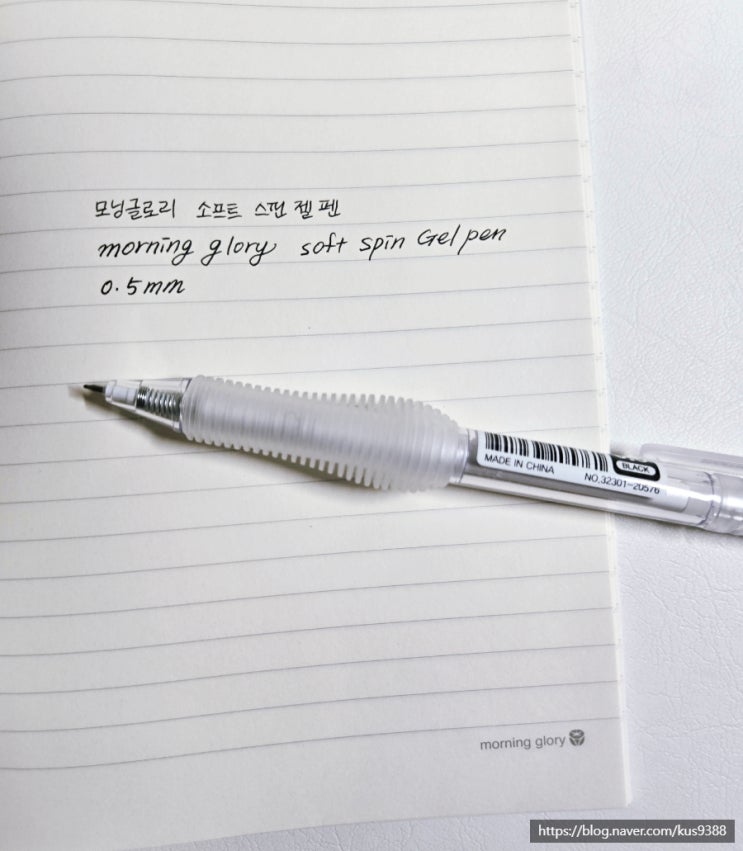 모닝글로리 소프트 스핀 젤 펜
morning glory soft spin Gel pen
0.5mm
BLACK
MADE IN CHINA
NO.32301-20576
morning glory
https://blog.naver.com/kus9388